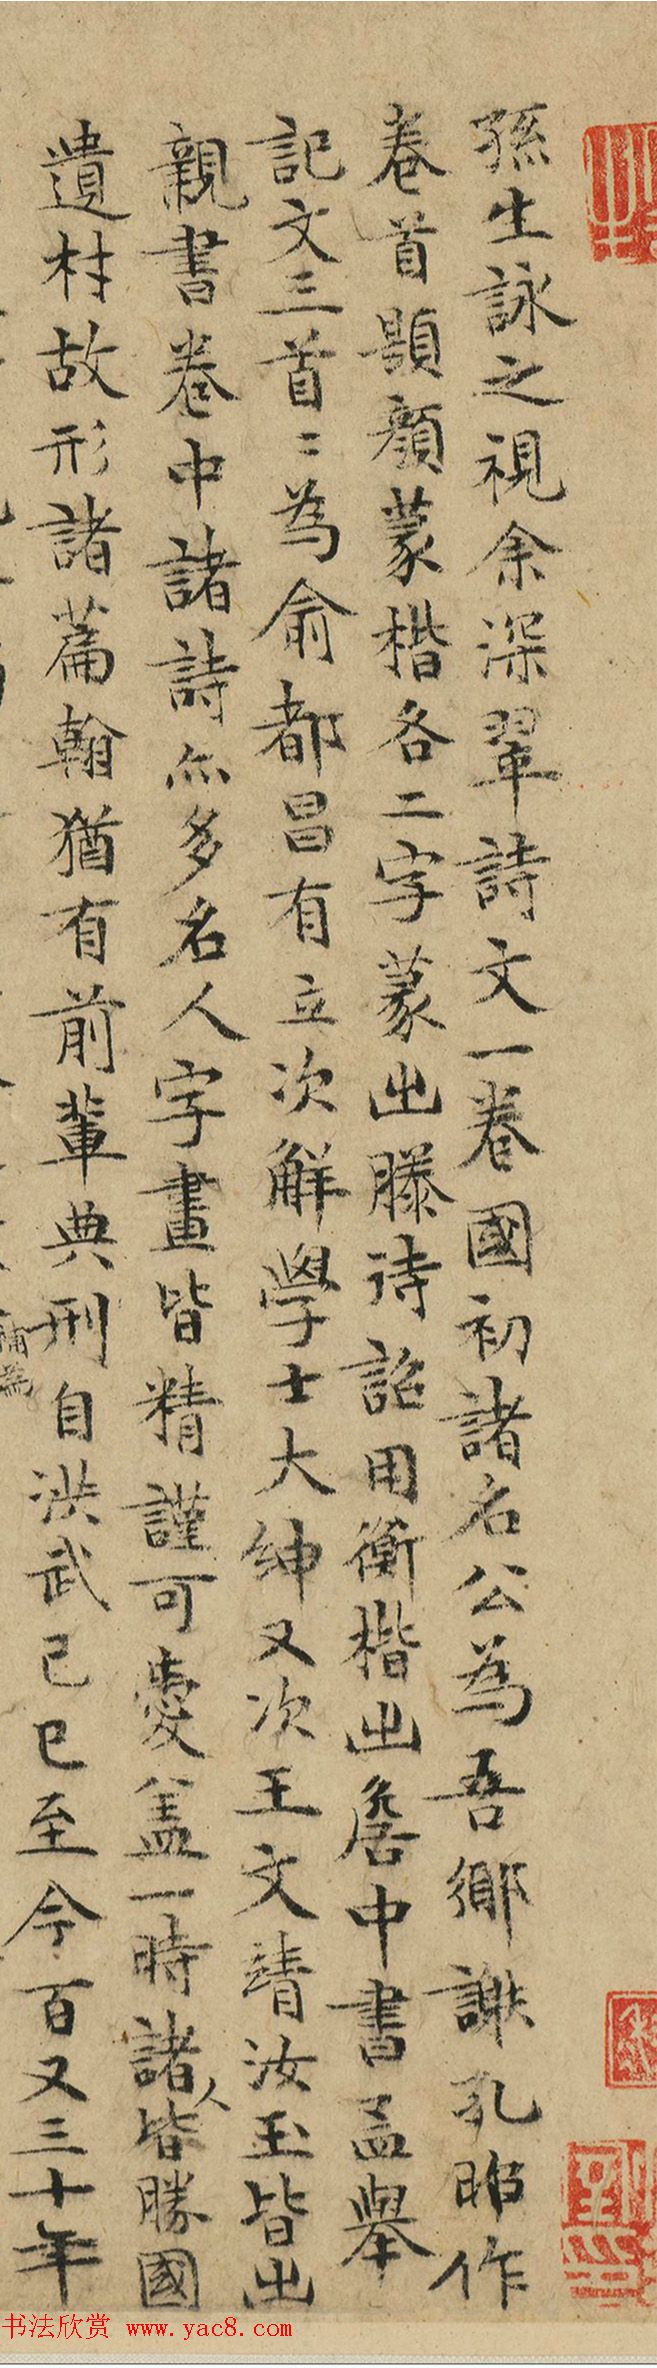 孫生詠之視余深翠詩文一卷國初諸名公為吾鄉謝孔昭作
卷首題顏篆楷各二字篆出滕待詔用衡楷出詹中書孟舉
記文三首〻為俞都昌有立次解學士大紳又次王文靖汝玉皆出
親書卷中諸詩亦多名人字畫皆精謹可愛盖一時諸人皆勝國
遺材故形諸篇翰猶有前輩典刑自洪武己巳至今百又三十年
書法欣赏 www.yac8.com